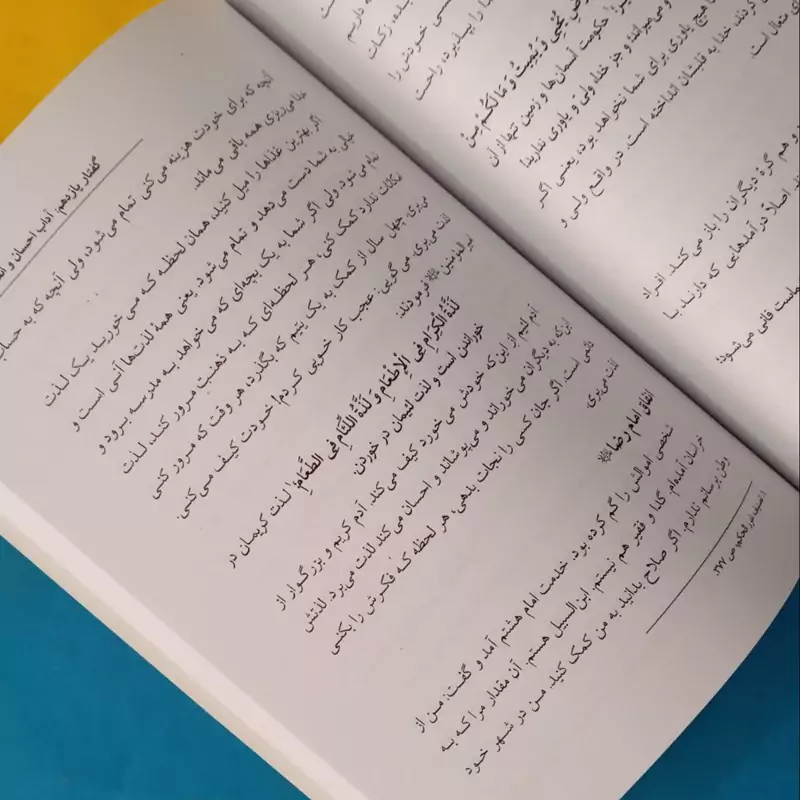 ده داریم
یده، زکات
سی خودش را
ما را بپذیرد، راحت
ضِ یُحیی وَ یُمیتُ وَ مَا لَکُمْ مِنْ
حکومت آسمان‌ها و زمین تنها از آن
و می‌میراند؛ و جز خدا، ولی و یاوری ندارید!
هیچ یاوری برای شما نخواهد بود، یعنی اگر
کردند، خدا به قلبشان انداخته است. در واقع ولی و
ی تعال است.
و هم گره دیگران را باز می کنند. افراد
ند. اصلاً درآمدهایی که دارند با
ماست فانی می‌شود؛
گفتار یازدهم: آداب احسان و
آنچه که برای خودت هزینه می کنی تمام می‌شود، ولی آنچه که به حساب
خدا می‌ریزی همه باقی می ماند.
اگر بهترین غذاها را میل کنید، همان لحظه که می خورید یک لذت
خیالی به شما دست می‌دهد و تمام می شود. یعنی همۀ لذت‌ها آنی است و
تمام می شود ولی اگر شما به یک بچه‌ای که می خواهد به مدرسه برود و
امکانات ندارد کمک کنی، هر لحظه‌ای که به ذهنت مرور کند، لذت
می‌بری. چهل سال از کمک به یک یتیم که بگذرد، هر وقت که مرور کنی
لذت می‌بری. می گویی: عجب کار خوبی کردم! خودت کیف می کنی.
امیرالمؤمنین فرمودند:
لَذَّةُ الْکِرَامِ فِی الْإِطْعَامِ وَ لَذَّةُ اللِّئَامِ فِی الطَّعَامِ؛ لذت کریمان در
خوراندن است و لذت لئیمان در خوردن.
آدم لئیم از این‌که خودش می خورد کیف می کند. آدم کریم و بزرگوار از
این‌که به دیگران می خوراند و می‌پوشاند و احسان می کند لذت می‌برد. لذتش
دائمی است. اگر جان کسی را نجات بدهی، هر لحظه که فکرش را بکنی
لذت می‌بری.
انفاق امام رضا
شخصی اموالش را گم کرده بود. خدمت امام هشتم آمد و گفت: من از
خراسان آمده‌ام. گدا و فقیر هم نیستم. ابن‌السبیل هستم. آن مقدار مرا که به
وطن برسانم ندارم. اگر صلاح بدانید به من کمک کنید. من در شهر خود
۱. تصنیف غررالحکم، ص ۳۷۷.